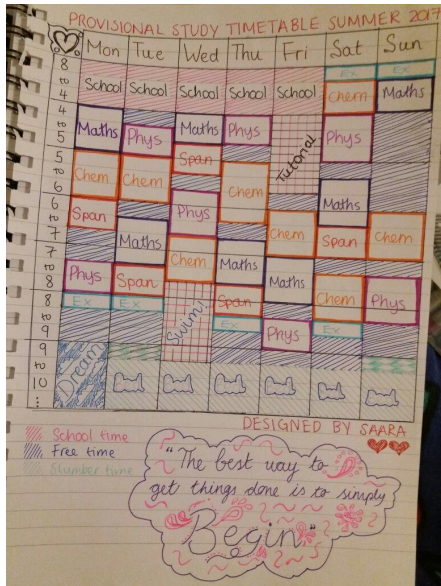 PROVISIONAL STUDY TIMETABLE SUMMER 2017
Mon Tue Wed Thu Fri Sat Sun
8 to 4
Ex Ex
School School School School School Chem Maths
4 to 5
Maths Phys Maths Phys Tutorial Phys
5 to 6
Span
Chem Chem Chem
6 to 7
Span Phys Maths
Chem Span Chem
7 to 8
Maths Chem Maths
Phys Span Maths Chem Phys
8 to 9
Ex Ex Swim! Span
Ex Phys Ex
9 to 10 ...
Dream
DESIGNED BY SAARA
School time
Free time
Slumber time
"The best way to
get things done is to simply
Begin."